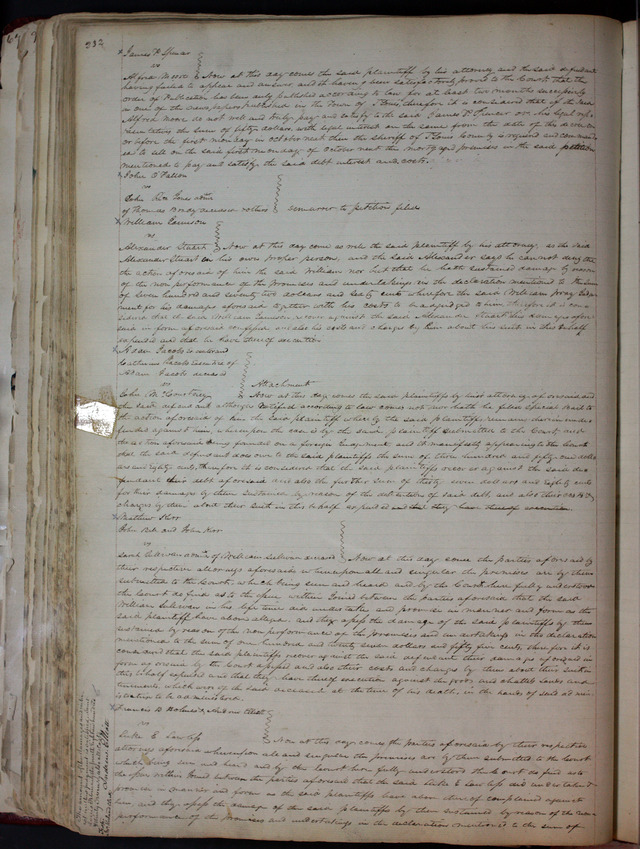 332
James P Spencer
vs
Alfred Moore } Now at this day comes the said plaintiff by his attorney, and the said defendant
having failed to appear and answer and it having been satisfactorily proved to the Court that the
order of Publication has been duly published according to law for at least two months successively
in one of the newspapers published in the Town of St Louis, therefore it is considered that if the said
Alfred Moore do not well and truly pay and satisfy to the said James P Spencer or his legal rep-
resentatives the sum of fifty dollars with legal interest on the same from the date of the
or before the first monday in October next then the sheriff of St Louis County is required and commanded
to sell on the said first monday of October next the mortgaged premises in the said petition
mentioned to pay and satisfy the said debt interest and costs.
John O Fallon
vs
John
of Thomas Brady deceased } demurrer to petition filed
William
vs
Alexander Stuart } Now at this day come as well the said plaintiff by his attorney, as the said
Alexander Stuart in his own proper person, and the said Alexander says he can not deny the
the action aforesaid of him the said William nor but that he hath sustained damage by reason
of the non performance of the promises and undertakings in the declaration mentioned to the sum
of seven hundred and seventy two dollars and sixty cents wherefore the said William pray Judg-
ment for his damages aforesaid together with his costs to be adjudged to him therefore it is con-
sidered that the said William recover against the said Alexander Stuart his damages afore
said in form aforesaid confessed and also his costs and charges by him about his suit in this behalf
expended and that he have thereof execution
Adam Jacobs
Catharine Jacobs Executrix of
Adam Jacobs deceased
vs Attachment
John M } Now at this day comes the said plaintiffs by their attorney aforesaid and
the said defendant although notified according to law comes not nor hath he filed special bail to
the action aforesaid of him the said plaintiffs whereby the said plaintiffs remain therein unde-
fended against him, whereupon the cause is by the said plaintiff submitted to the Court, and
the action aforesaid being founded on a foreign Judgment and it manifestly appearing to the Court
that the said defendant does owe to the said plaintiffs the sum of three hundred and fifty one doll-
ars and eighty cents, therefore it is considered that the said plaintiffs recover against the said de-
fendant their debt aforesaid and also the further sum of thirty seven dollars and eighty cents
for their damages by them sustained by reason of the detention of said debt and also their costs &
charges by them about their suit in this behalf expended and that they have thereof execution
Matthew Kerr
John Bell and John Kerr
vs
Sarah Sullivan admx of William Sullivan deceased } Now at this day come the parties aforesaid by
their respective attorneys aforesaid whereupon all and singular the premises are by them
submitted to the Court, which being seen and heard and by the Court here fully understood
the Court do find as to the issue within Joined between the parties aforesaid that the said
William Sullivan in his life time did undertake and promise in manner and form as the
said plaintiff have above alleged. and they assess the damage of the said Plaintiffs by them
sustained by reason of the non performance of the promises and undertakings in the declaration
mentioned to the sum of one hundred and twenty seven dollars and fifty five cents, therefore it is
considered that the said plaintiffs recover against the said defendant their damages aforesaid in
form aforesaid by the Court assessed and also their costs and charges by them about their suit in
this behalf expended and that they have thereof execution against the goods and chattels lands and
tenements, which were of the said deceased at the time of his death, in the hands of said admin-
istratrix to be administered.
Francis B Holmes & Andrew Elliott
vs
Luke E Lawless } Now at this day comes the parties aforesaid by their respective
attorneys aforesaid whereupon all and singular the premises are by them submitted to the Court
which being seen and heard and by the Court here fully understood the Court do find as to
the issue within Joined between the parties aforesaid that the said Luke E Lawless did undertake &
promise in manner and form as the said plaintiffs have above thereof complained against
him, and they assess the damage of the said plaintiffs by them sustained by reason of the non
performance of the promises and undertakings in the declaration mentioned to the sum of